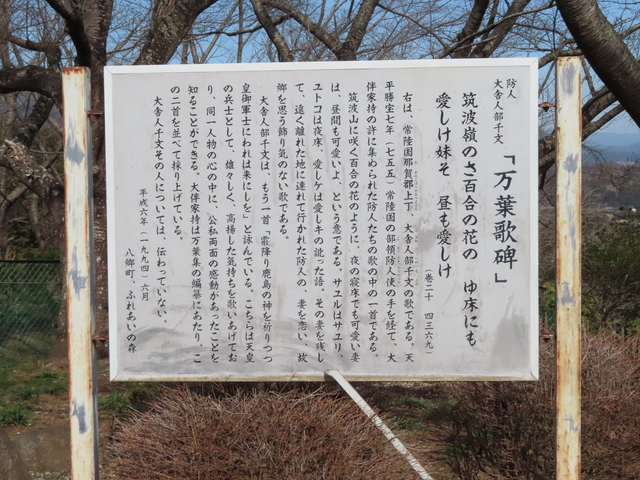 防人
大舎人部千文
「万葉歌碑」
筑波嶺のさ百合の花の　ゆ床にも
愛しけ妹そ　昼も愛しけ
(巻二十　四三六九)
右は、常陸国那賀郡上丁　大舎人部千文の歌である。天
平勝宝七年（七五五）常陸国の部領防人使の手を経て、大
伴家持の許に集められた防人たちの歌の中の一首である。
筑波山に咲く百合の花のように、夜の寝床でも可愛い妻
は、昼間も可愛いよ、という意である。サユルはサユリ、
ユトコは夜床、愛しケは愛しキの訛った語、その妻を残し
て、遠く離れた地に連れて行かれた防人の、妻を恋い、故
郷を思う飾り気のない歌である。
大舎人部千文は、もう一首「霰降り鹿島の神を祈りつつ
皇御軍士にわれは来にしを」と詠んでいる。こちらは天皇
の兵士として、雄々しく、高揚した気持ちを歌いあげてお
り、同一人物の心の中に、公私両面の感動があったことを
知ることができる。大伴家持は万葉集の編纂にあたり、こ
の二首を並べて採り上げている。
大舎人千文その人については、伝わっていない。
平成六年（一九九四）六月
八郷町、ふれあいの森